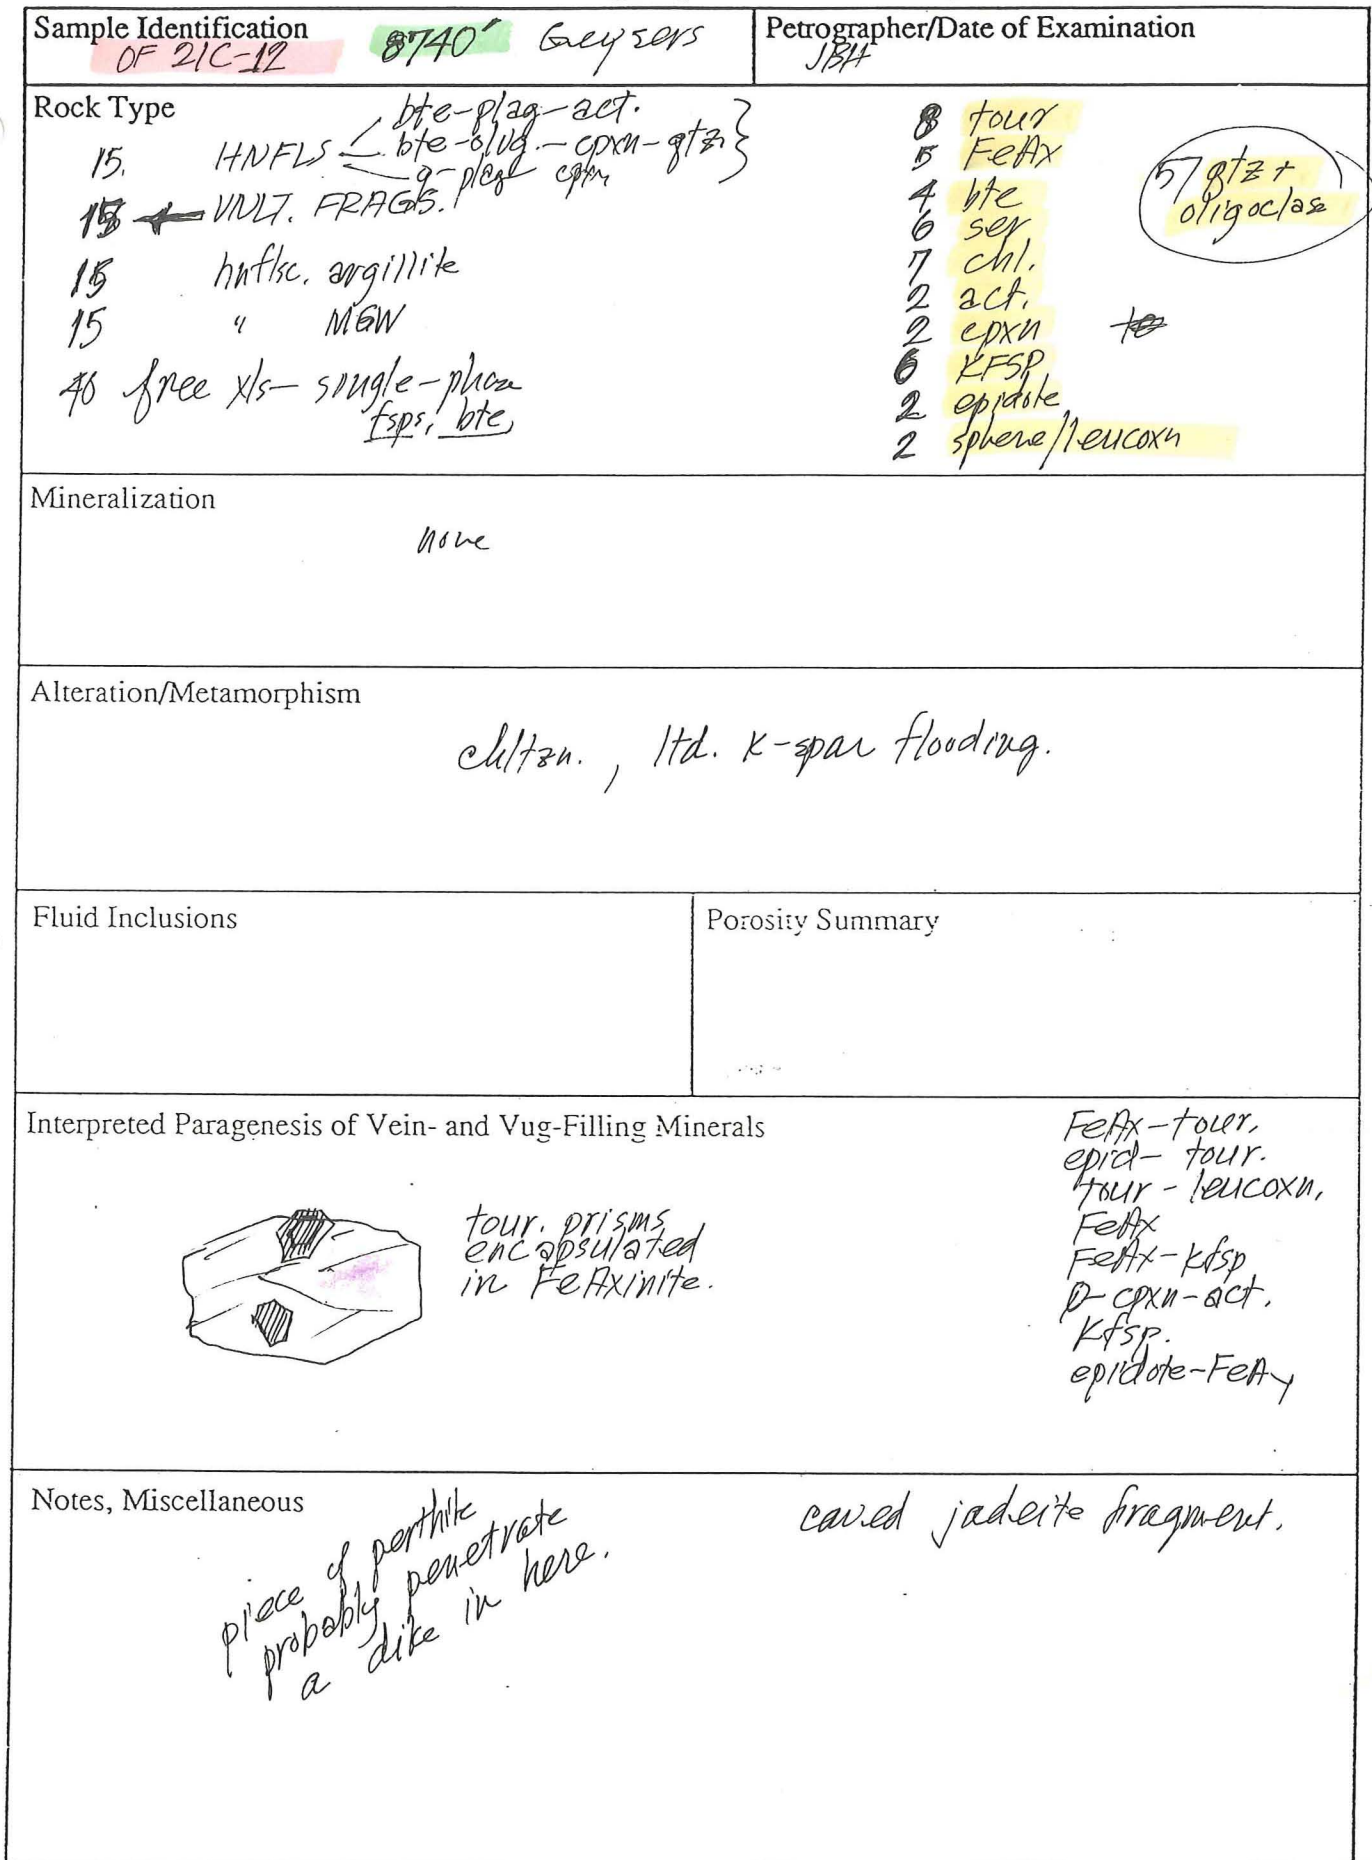 Sample Identification
OF 21C-12 8740' Geysers
Petrographer/Date of Examination
JBH
Rock Type
bte-plag-act.
15. HNFLS bte-plag.-cpxn-qtz
q-plag cpxn
15 VNLT. FRAGS.
15 hnflsc. argillite
15 " MGW
40 free xls- single-phase
fsps, bte,
8 tour
5 FeAx
4 bte
6 ser
7 chl.
2 act.
2 cpxn
6 KFSP
2 epidote
2 sphene/leucoxn
57 qtz +
oligoclase
Mineralization
none
Alteration/Metamorphism
chltzn., ltd. K-spar flooding.
Fluid Inclusions
Porosity Summary
Interpreted Paragenesis of Vein- and Vug-Filling Minerals
tour. prisms
encapsulated
in FeAxinite.
FeAx-tour.
epid- tour.
tour-leucoxn.
FeAx
FeAx-kfsp
p-cpxn-act.
Kfsp.
epidote-FeAx
Notes, Miscellaneous
piece of perthite
probably penetrate
a dike in here.
caved jadeite fragment.